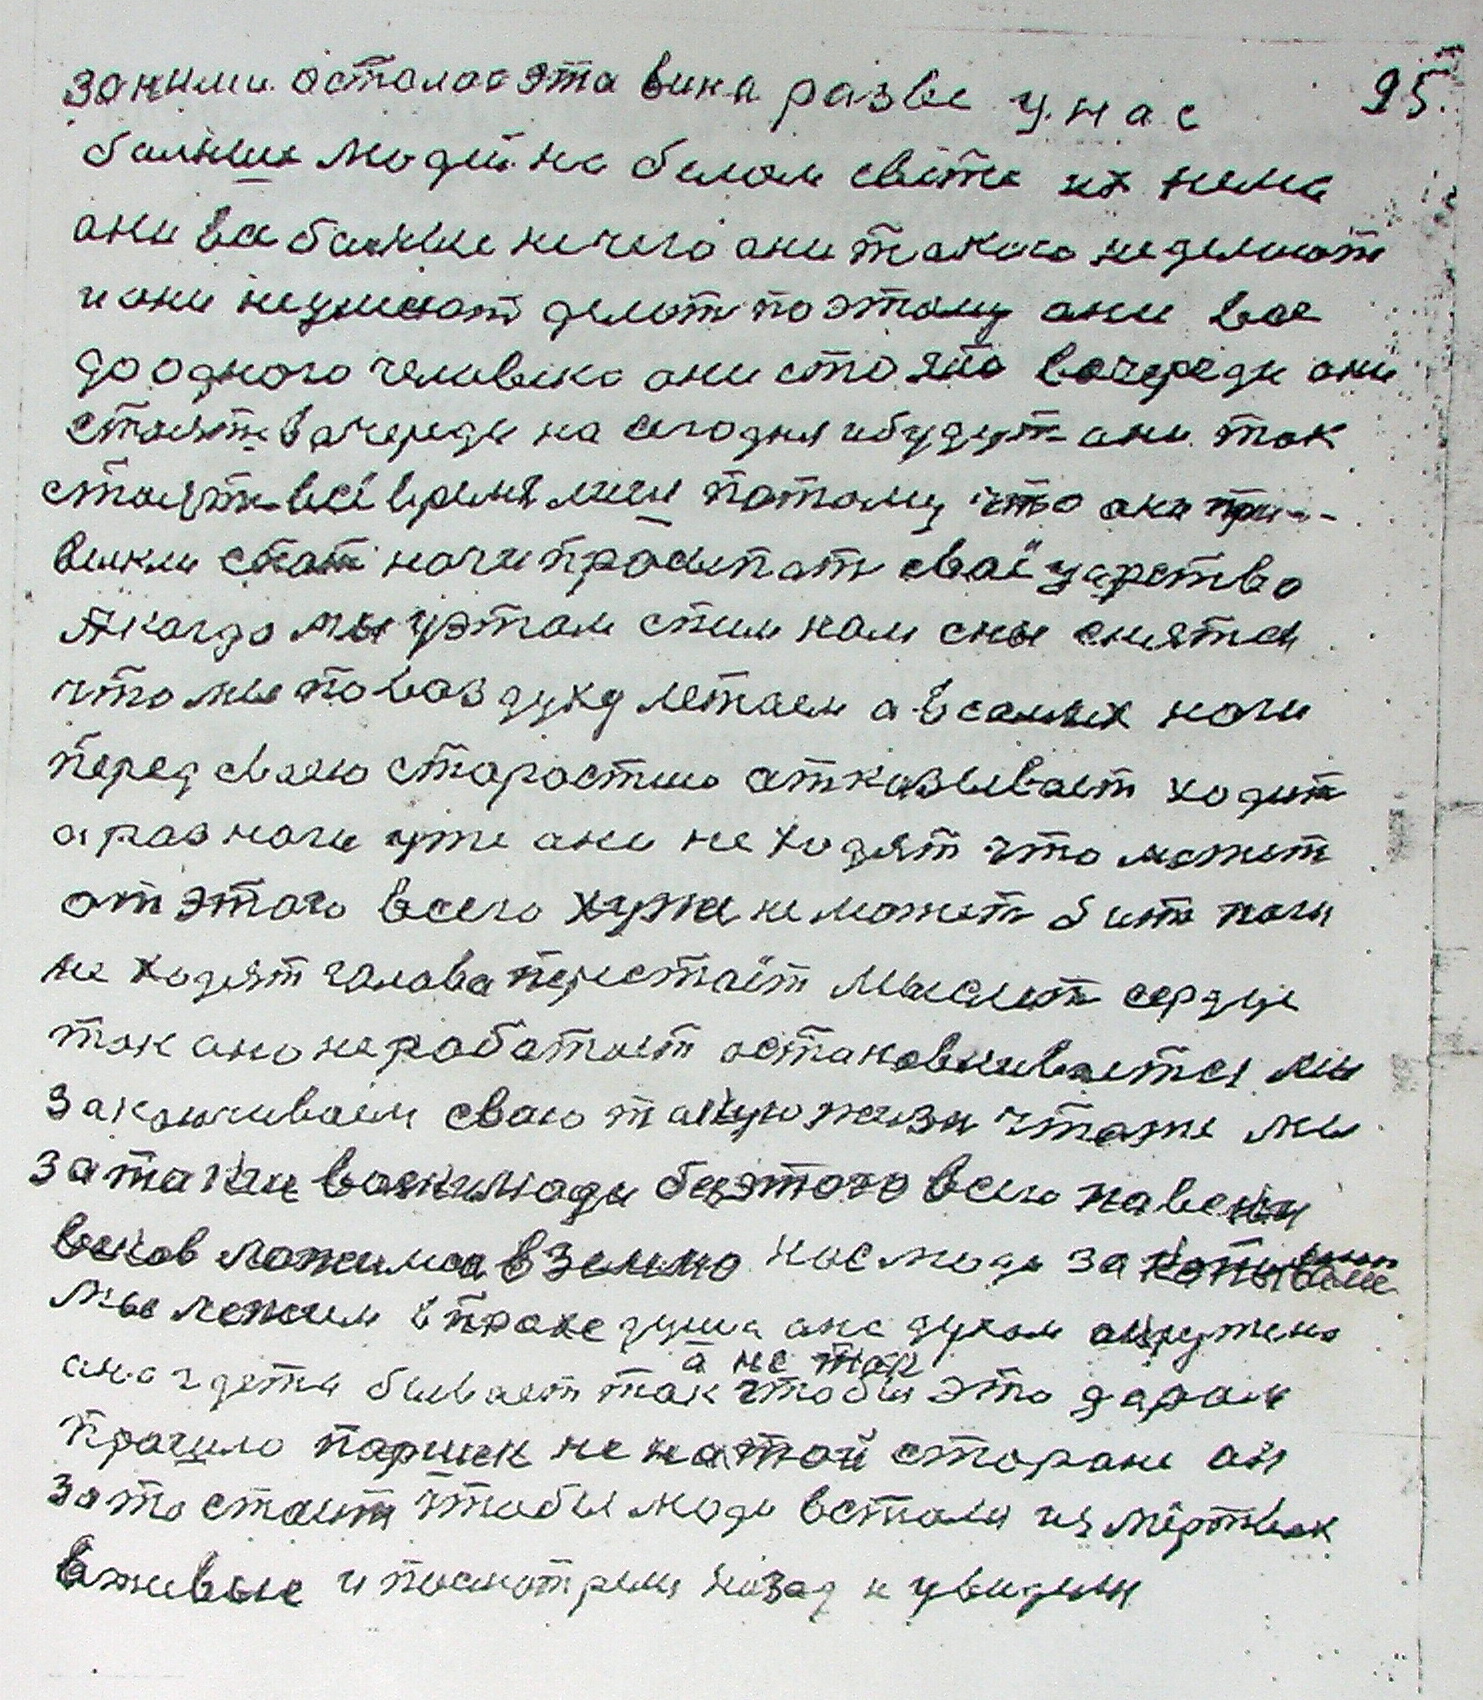 95.
за ними осталас эта вина разве у нас
балних людей на белом свете их нема
ани ва балше нечего ани такого неделают
и ани неумеют делат поэтому ани все
до одного человека ани стоят вочереди ани
стоят вочереди на сегодня ибудут ани так
стоят всё время мы потому что ани при-
выкли спат ночи просыпат своё царство
А когда мы уэтом спим нам сны снятся
что мы повоздуху летаем а в самих ноги
перед сваею старостью атказывает ходит
а раз ноги уже ани не ходят что может
от этого всего хуже не может бить ноги
не ходят галава перестаёт мыслит сердце
так ано не работает астановливается мы
заканчиваем сваю такую жизн чтоже мы
за такие ваякилюди безэтого всего навеки
веков ложимса в землю нас люди закапывают
мы лежим впрахе душа ана духам окружена
ана где ти бывает так а не так чтобы это даром
прошло паршек не на той старане он
зато стоит чтобы люди встали из мёртвых
вживые и посмотрели назад и увидели